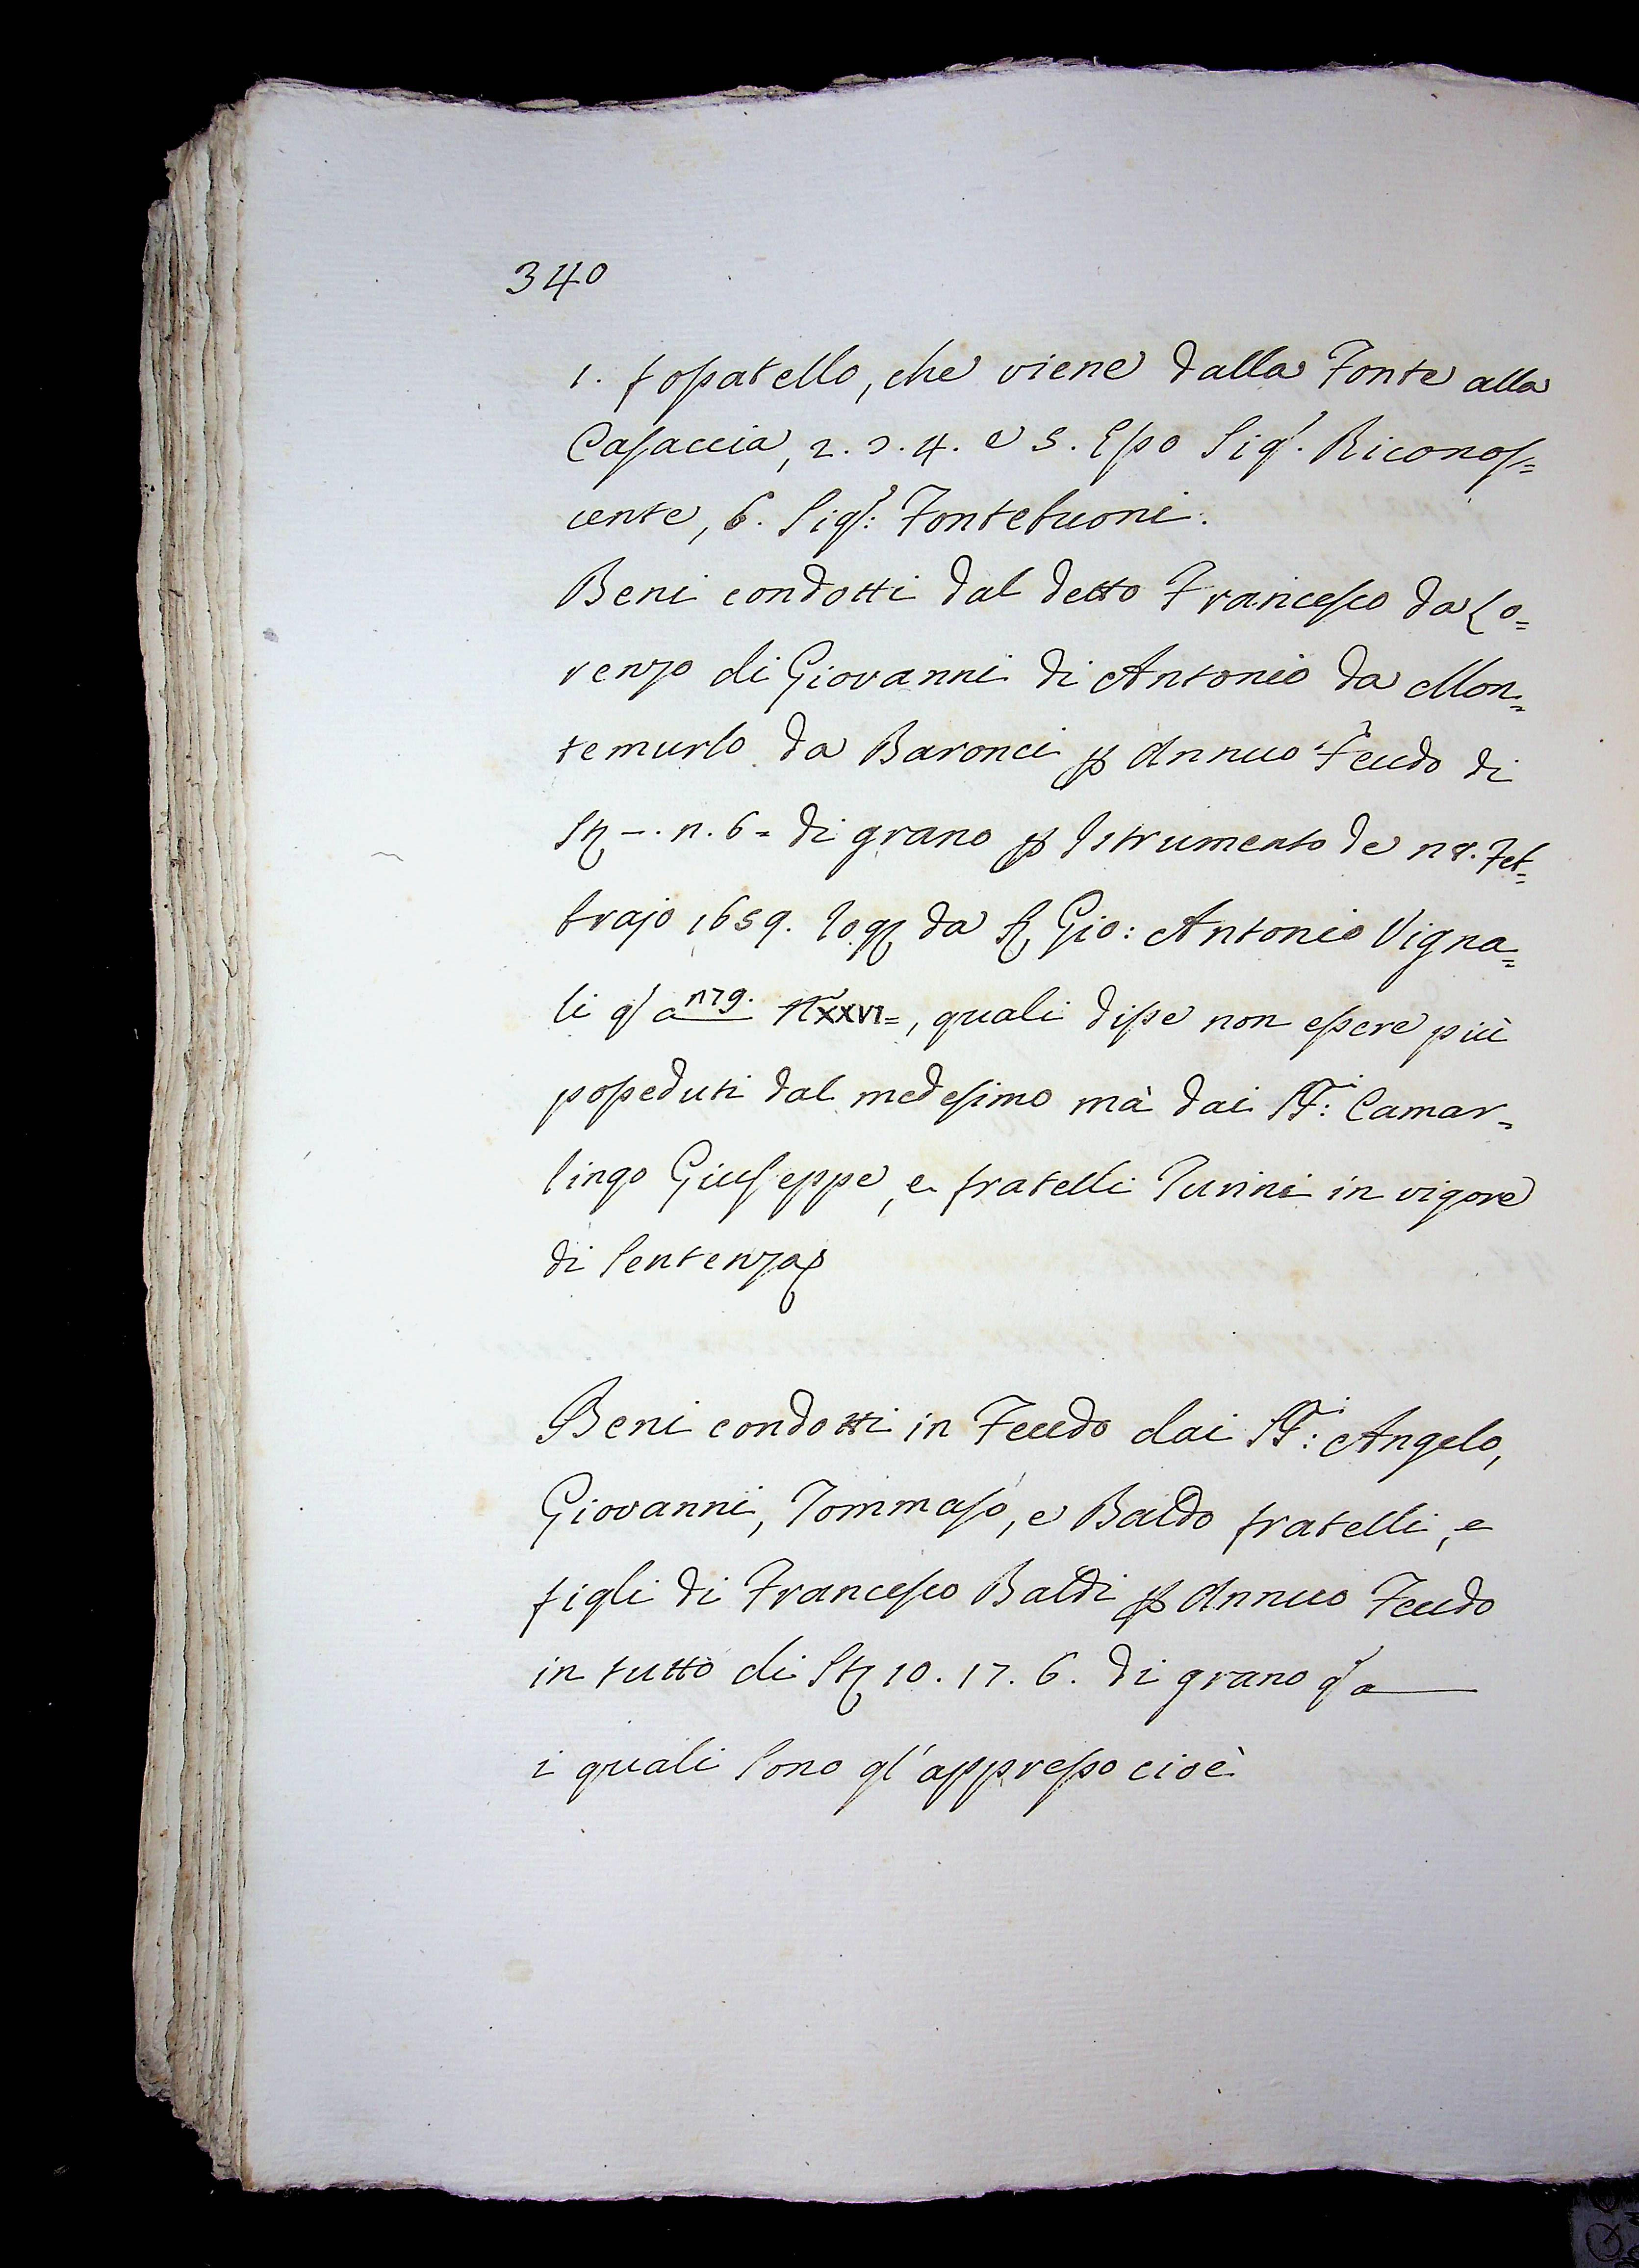 340
1. foſsatello, che viene dalla Fonte alla
Caſaccia, 2. 3. 4. e 5. Eſso Sig.r Riconoſ=
cente, 6. Sig.r: Fontebuoni.
Beni condotti dal detto Franceſco da Lo=
renzo di Giovanni di Antonio da Mon=
temurlo da Baronci p Annuo Feudo di
St –. n. 6= di grano p Istrumento de 18. Feb=
brajo 1659. rog da S Gio: Antonio Vigna=
li q a 179. N XXVI=, quali diſse non eſsere più
poſseduti dal medeſimo mà dai SS.ri: Camar=
lingo Giuſeppe, e fratelli Turini in vigore
di Sentenza
Beni condotti in Feudo dai SS.ri: Angelo,
Giovanni, Tommaſo, e Baldo fratelli, e
figli di Franceſco Baldi p Annuo Feudo
in tutto di St 10. 17. 6. di grano q a
i quali Sono gl' appreſso cioè